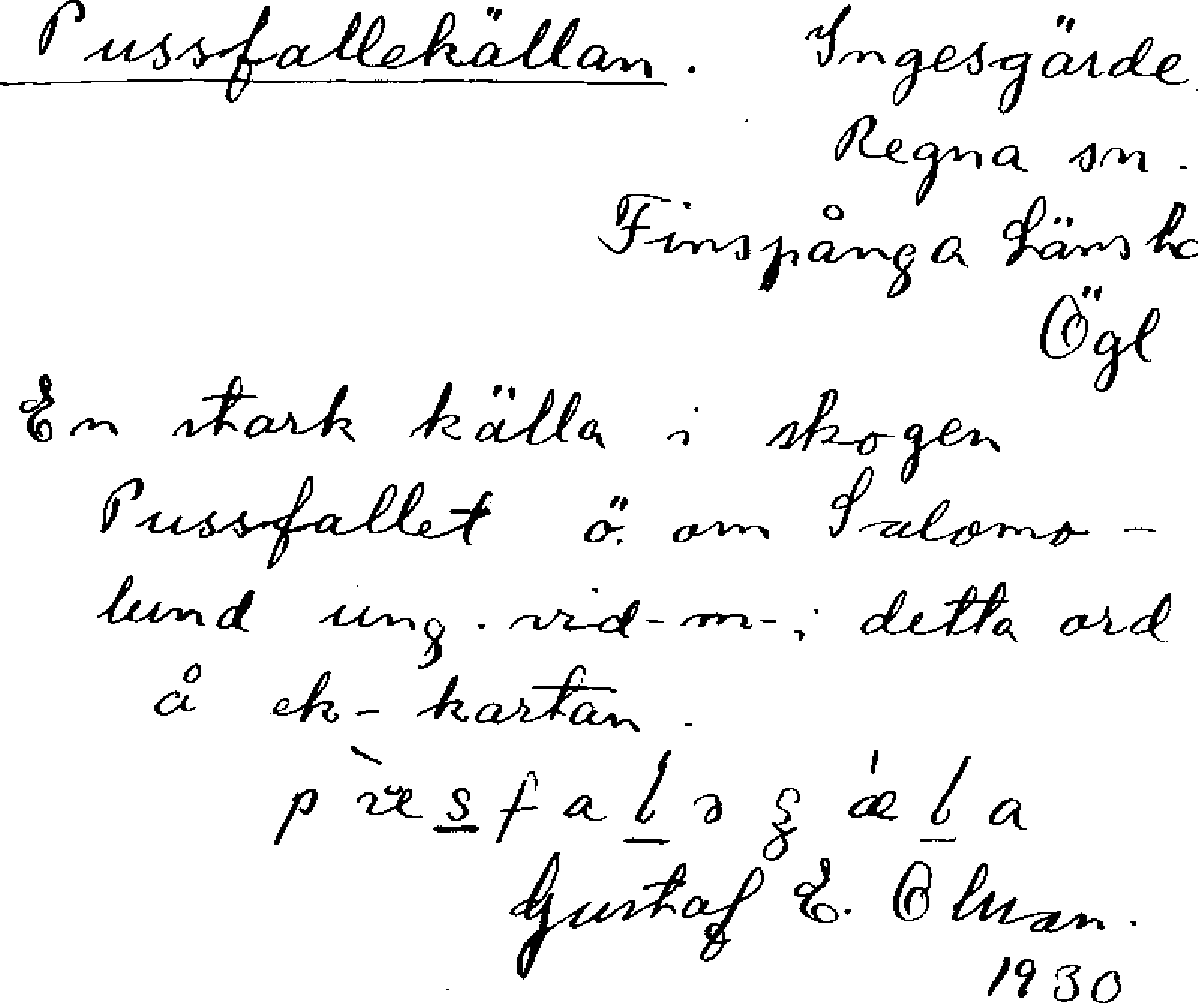 Pussfallekällan. Ingesgärde
Regna sn.
Finspånga Länsh
Ögl
En stark källa i skogen
Pussfallet ö. om Salomo-
lund ung. vid -m- i detta ord
å ek-kartan.
Gustaf E. Olsson.
1930